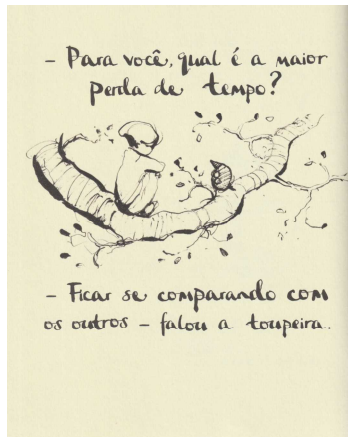 - Para você, qual é a maior
perda de tempo?
- Ficar se comparando com
os outros - falou a toupeira.